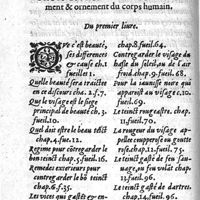 ment & ornement du corps humain.
Du premier liure.
QVe c'est beauté,
ses differences
& cause ch. 1
fueillet 1.
Quelle beauté sera traictee
en ce discours cha. 2. f. 7.
Qui le visage est le siege
principal de beauté ch. 3.
fueil. 10.
Quel doit estre le beau teict
chap. 4. f. 12.
Regime pour côtregarder le
bon teinct chap. 5. fueil. 16.
Remedes exterieurs pour
contregarder le bõ teinct
chap. 6. f. 35.
Les vices qui gastent le
chap. 8. fueil. 64.
Contregarder le visage du
hasle du soleil, ou de l'air
froid. chap. 9. fueil. 68.
Pour la taunisse noire qui
apparoist au visage chap.
10. f. 69.
Le teinct rougastre. chap.
11. fueil. 70.
La rougeur du visage ap-
pellee coupperose ou goutte
rose. chap. 12. fueil. 75.
Le teinct gasté de feu sau-
uage, ou volage chap. 13.
fueil. 91.
Le teinct gasté de dartres
chap. 14. fueil. 96.